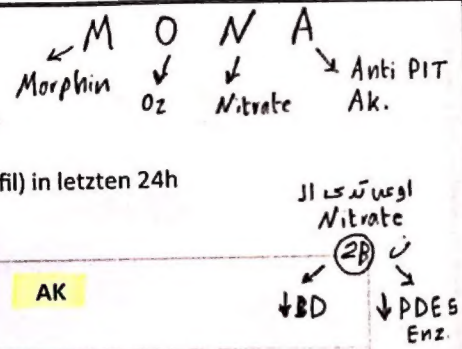 M O N A
Morphin O2 Nitrate Anti PIT
Ak.
fil) in letzten 24h
اوعى تدى ال
Nitrate
2B ن
AK
↓BD ↓PDE5
Enz.